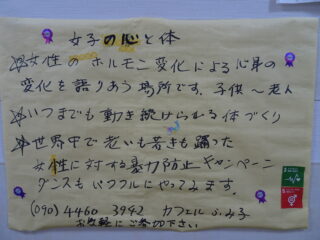 女子の心と体
☆女性のホルモン変化による心身の
変化を語りあう場所です。子供〜老人
☆いつまでも動き続けられる体づくり
☆世界中で老いも若きも踊った
女性に対する暴力防止キャンペーン
ダンスもパワフルにやってみます。
(090) 4460 3942 カフェル ふみ子
お気軽にご参加下さい